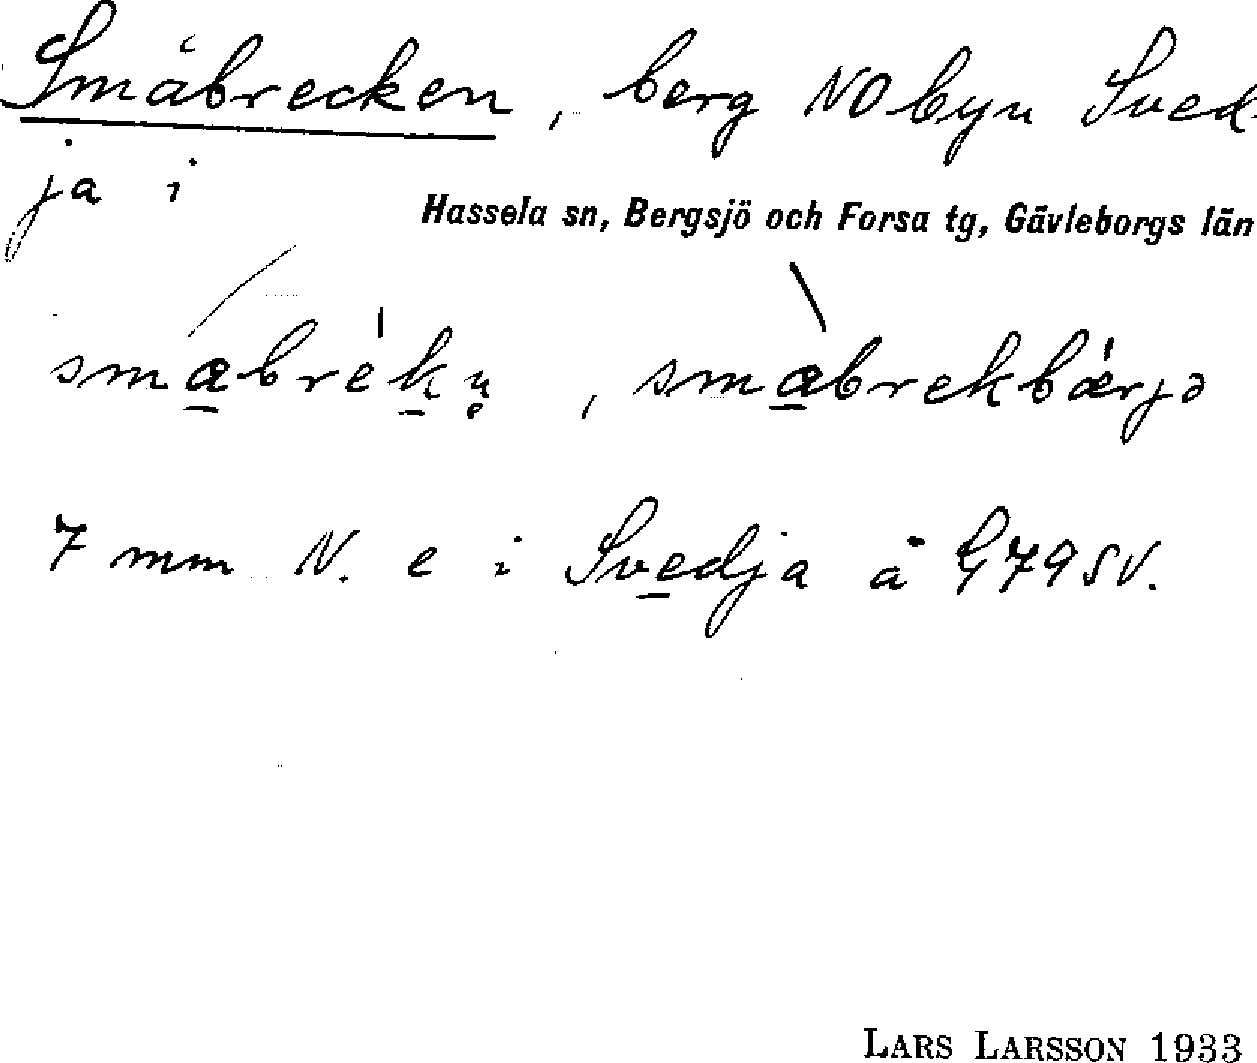 Småbrecken, berg NO byn Sved-
ja i
Hassela sn, Bergsjö och Forsa tg, Gävleborgs län
smabrekn̥, smabrekbærjə
7 mm N. e i Svedja å G79SV.
LARS LARSSON 1933